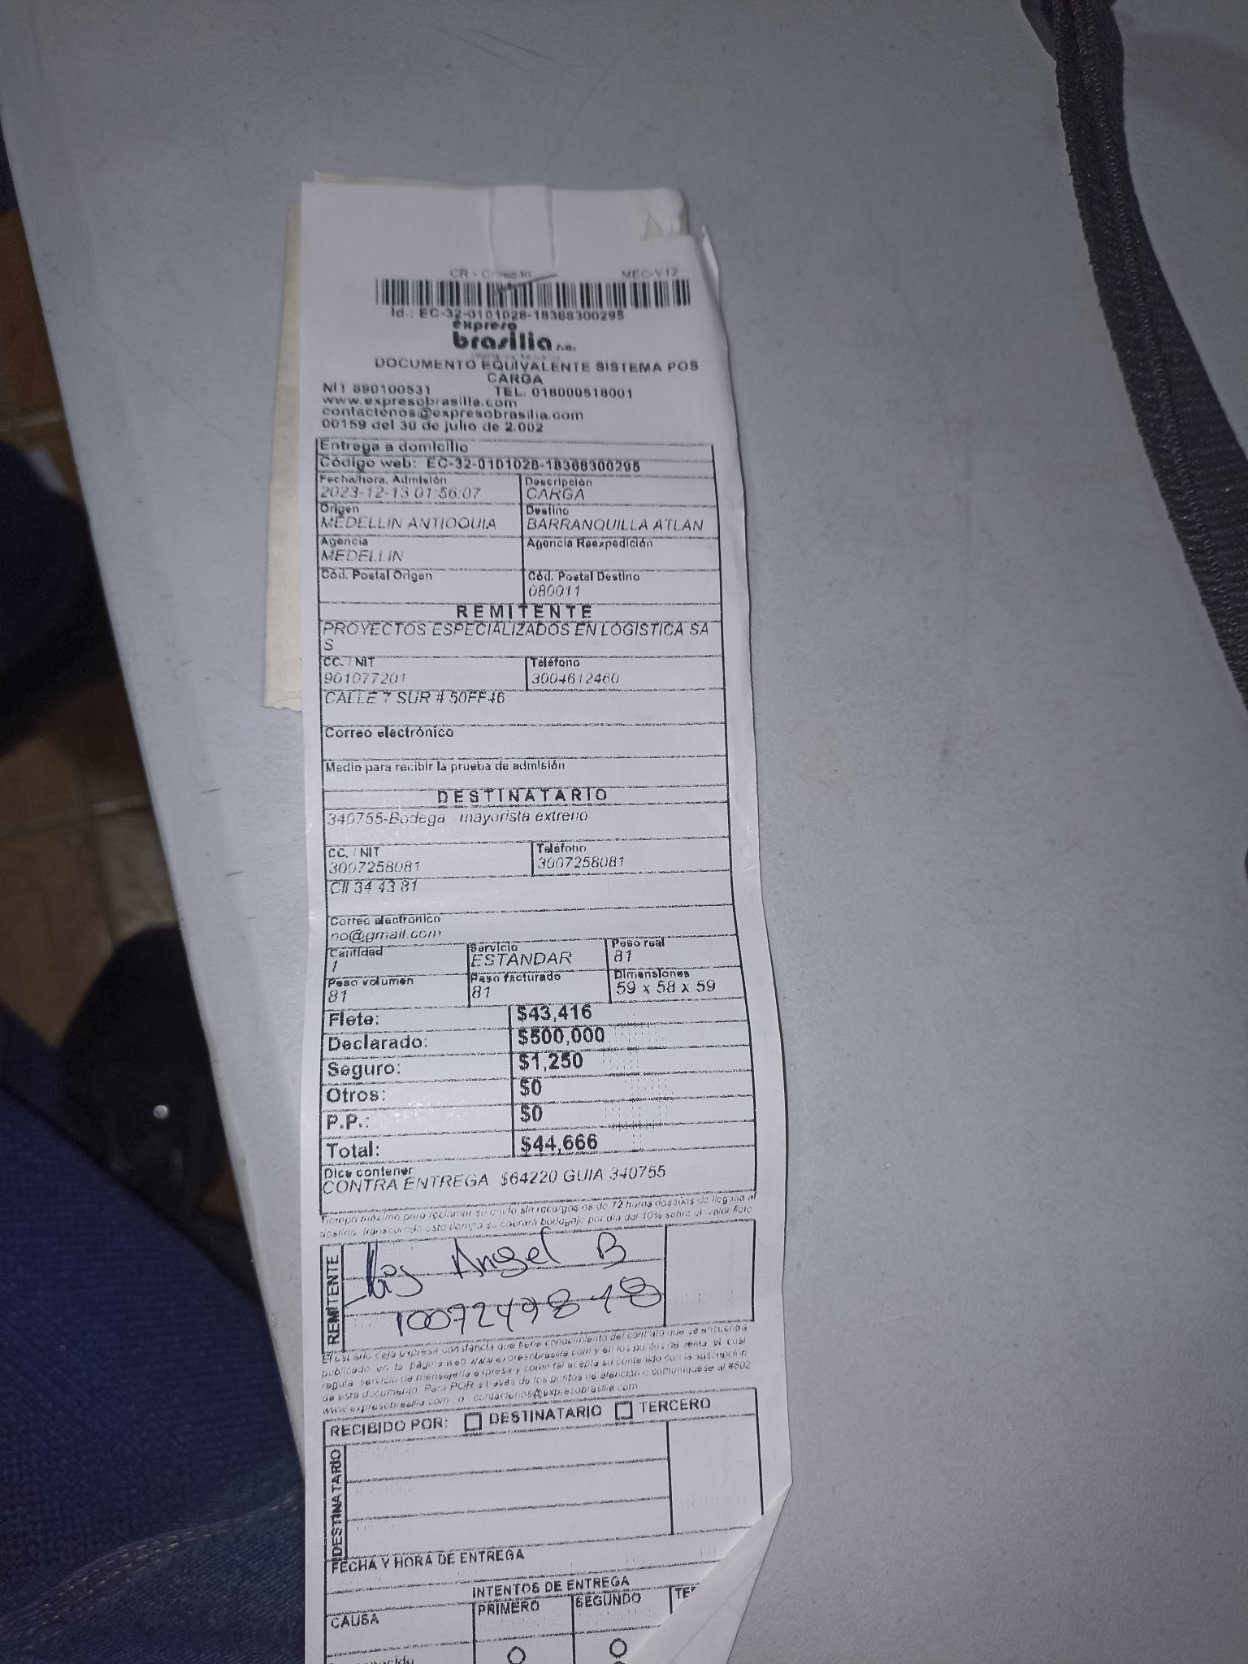 CR - Crédito MEC-V12
Id.: EC-32-0101028-18368300295
expreso
brasilia s.a.
DOCUMENTO EQUIVALENTE SISTEMA POS
CARGA
NIT 890100531 TEL. 018000518001
www.expresobrasilia.com
contactenos@expresobrasilia.com
00159 del 30 de julio de 2.002
Entrega a domicilio
Código web: EC-32-0101028-18368300295
Fecha/hora, Admisión Descripción
2023-12-13 01:56:07 CARGA
Origen Destino
MEDELLIN ANTIOQUIA BARRANQUILLA ATLAN
Agencia Agencia Reexpedición
MEDELLIN
Cód. Postal Origen Cód. Postal Destino
080011
REMITENTE
PROYECTOS ESPECIALIZADOS EN LOGISTICA SA
S
CC. / NIT Teléfono
901077201 3004612460
CALLE 7 SUR # 50FF46
Correo electrónico
Medio para recibir la prueba de admisión
DESTINATARIO
340755-Bodega mayorista extreno
CC. / NIT Teléfono
3007258081 3007258081
Cll 34 43 81
Correo electrónico
no@gmail.com
Cantidad Servicio Peso real
1 ESTANDAR 81
Peso volumen Peso facturado Dimensiones
81 81 59 x 58 x 59
Flete: $43,416
Declarado: $500,000
Seguro: $1,250
Otros: $0
P.P.: $0
Total: $44,666
Dice contener
CONTRA ENTREGA $64220 GUIA 340755
Tiempo máximo para reclamar su envío sin recargos es de 72 horas después de llegado al
destino, transcurrido este tiempo se cobrará bodegaje por día del 10% sobre el valor flete
REMITENTE
Angel B
1007249848
El usuario deja expresa constancia que tiene conocimiento del contrato que se encuentra
publicado en la página web www.expresobrasilia.com y en los puntos de venta el cual
regula servicio de mensajería expresa y como tal acepta su contenido con la suscripción
de este documento. Para PQR a través de los puntos de atención o comuníquese al #502
www.expresobrasilia.com o contactenos@expresobrasilia.com
RECIBIDO POR: DESTINATARIO TERCERO
DESTINATARIO
FECHA Y HORA DE ENTREGA
INTENTOS DE ENTREGA
CAUSA PRIMERO SEGUNDO TE